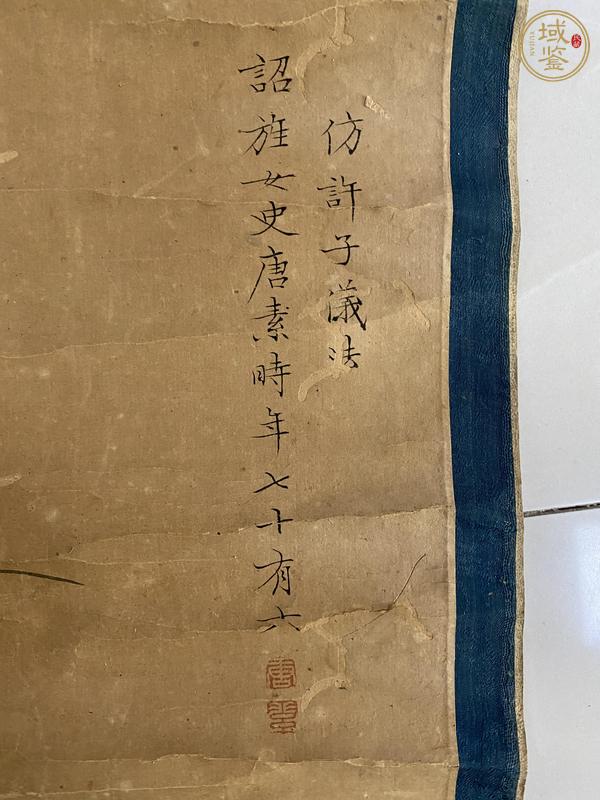 仿許子濊法
詔旌女史唐素時年七十有六
域鉴
YUJIAN